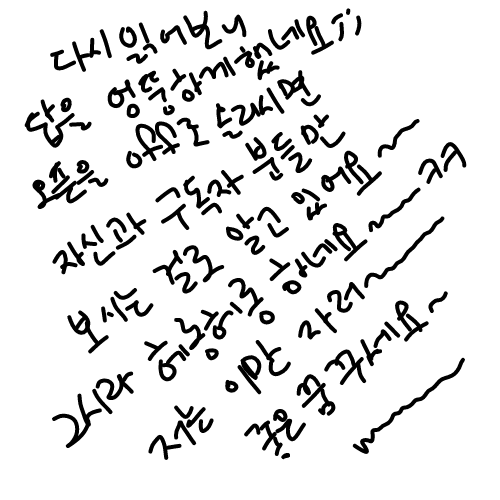 다시 읽어보니
답은 엉뚱하게했네요;;
오픈을 off로 돌리시면
자신과 구독자 분들만
보시는 걸로 알고 있어요~
크시라 헤롱헤롱 하네요~ㅋㅋ
저는 이만 자러~
좋은 꿈 꾸세요~